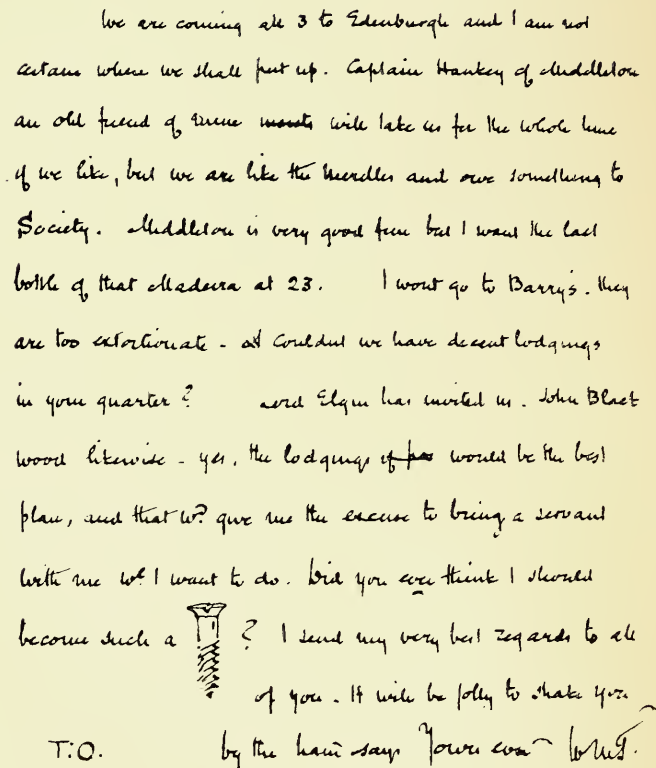 We are coming all 3 to Edenburgh and I am not
certain where we shall put up. Captain Hankey of Middleton
an old friend of mine wants will take us for the whole time
if we like, but we are like the Merdles and owe something to
Society. Middleton is very good fun but I want the last
bottle of that Madeira at 23. I wont go to Barry's. they
are too extortionate - Couldnt we have decent lodgings
in your quarter? Lord Elgin has invited us. John Black
wood likewise - yes, the lodgings if would be the best
plan, and that wd give me the excuse to bring a servant
with me wh I want to do. Did you ever think I should
become such a ? I send my very best regards to all
of you. It will be jolly to shake you
by the hand says Yours ever WMT.
T.O.